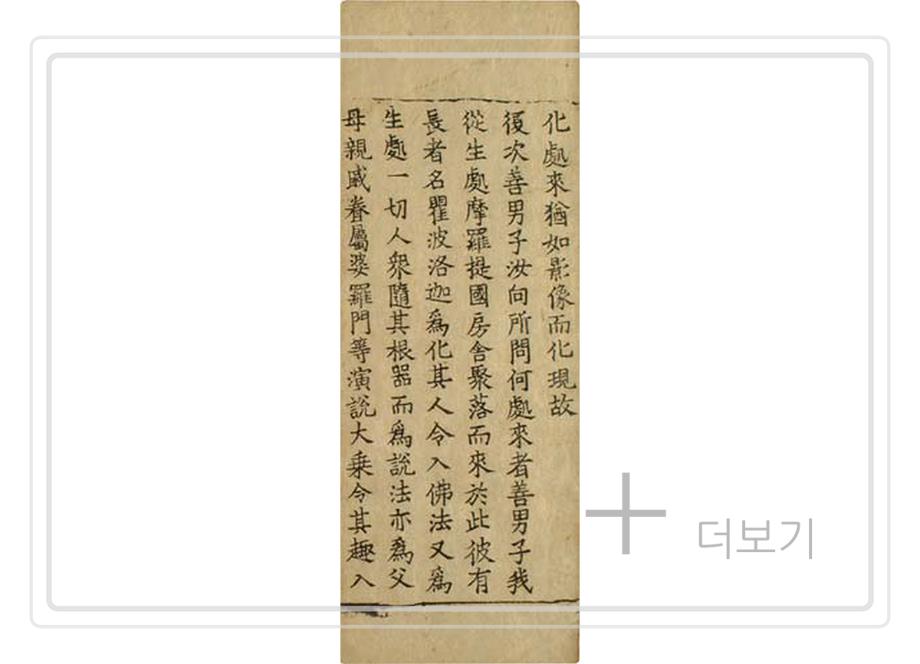 化處來猶如影像而化現故
復次善男子汝向所問何處來者善男子我
從生處摩羅提國房舍聚落而來於此彼有
長者名瞿波洛迦爲化其人令入佛法又爲
生處一切人衆隨其根器而爲說法亦爲父
母親戚眷屬婆羅門等演說大乘令其趣入
더보기